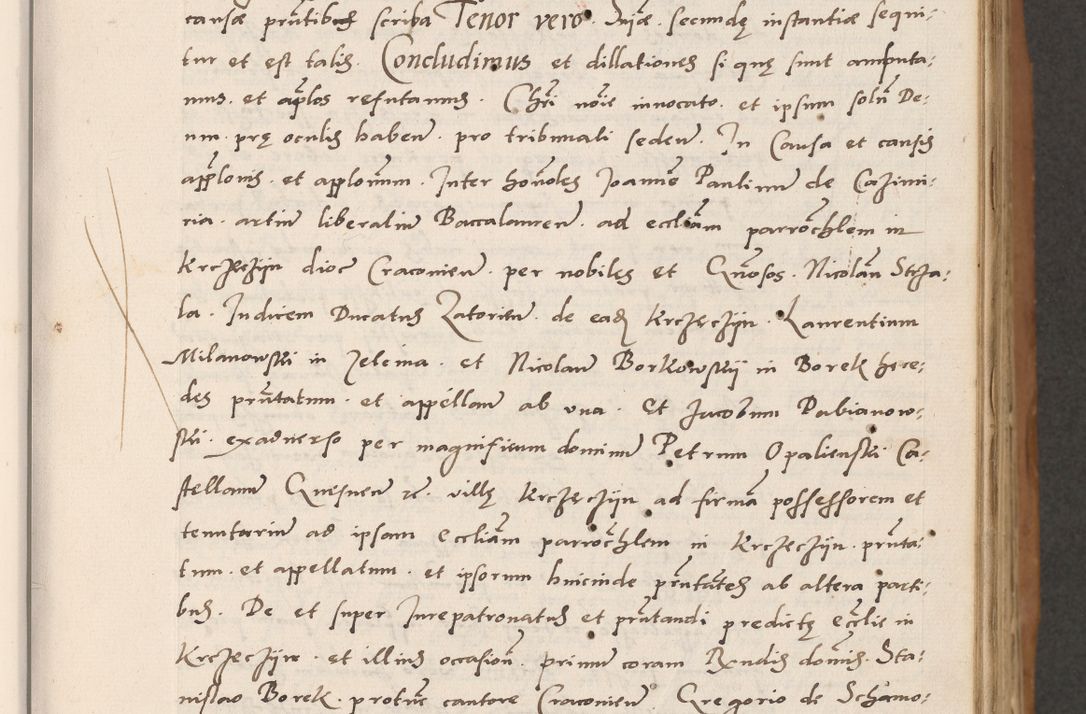 causæ pñtibus scriba Tenor vero. Sniæ. secundę instantiæ sequi-
tur et est talis. Concludimus et dillationes si quę sunt amputa:
mus. et aplos refutamus. Chri nõie innocato. et ipsum solũ De:
um. prę oculis haben̄. pro tribunali seden̄. In Causa et causis
applonis. et applonum. Inter honoles Joannē Paulinum de Cazimi:
ria. artiũ liberaliũ Baccalaureũ. ad eccliam parrochlem in
Krczeczijn dioc̄ Cracouien̄. per nobiles et Gñosos. Nicolaũ Strza:
la. Judicem Ducatus Zatorien̄. de eadẽ Krczeczijn. Laurentium
Milanowski in Zeleina. et Nicolaũ Borkowskij in Borek here:
des pñtatum. et appellañ ab vna. Et Jacobum Dabianow:
ski. exaduerso per magnificum dominũ Petrum Opalienski Ca:
stellanũ Gnesnen̄ zc̄. villę Krczeczijn ad firmã possessorem et
tenutariũ ad ipsam Eccliam parrochlem in Krczeczijn. pñta:
tum. et appellatum. et ipsorum hincinde pñtantes ab altera parti:
bus. De et super Jurepatronatus et pñtandi predictę Ecclie in
Krczeczijn. et illius occasioñ. primũ coram Rendis domis. Sta:
nislao Borek. protunc cantore Cracouien̄. Gregorio de Schamo: